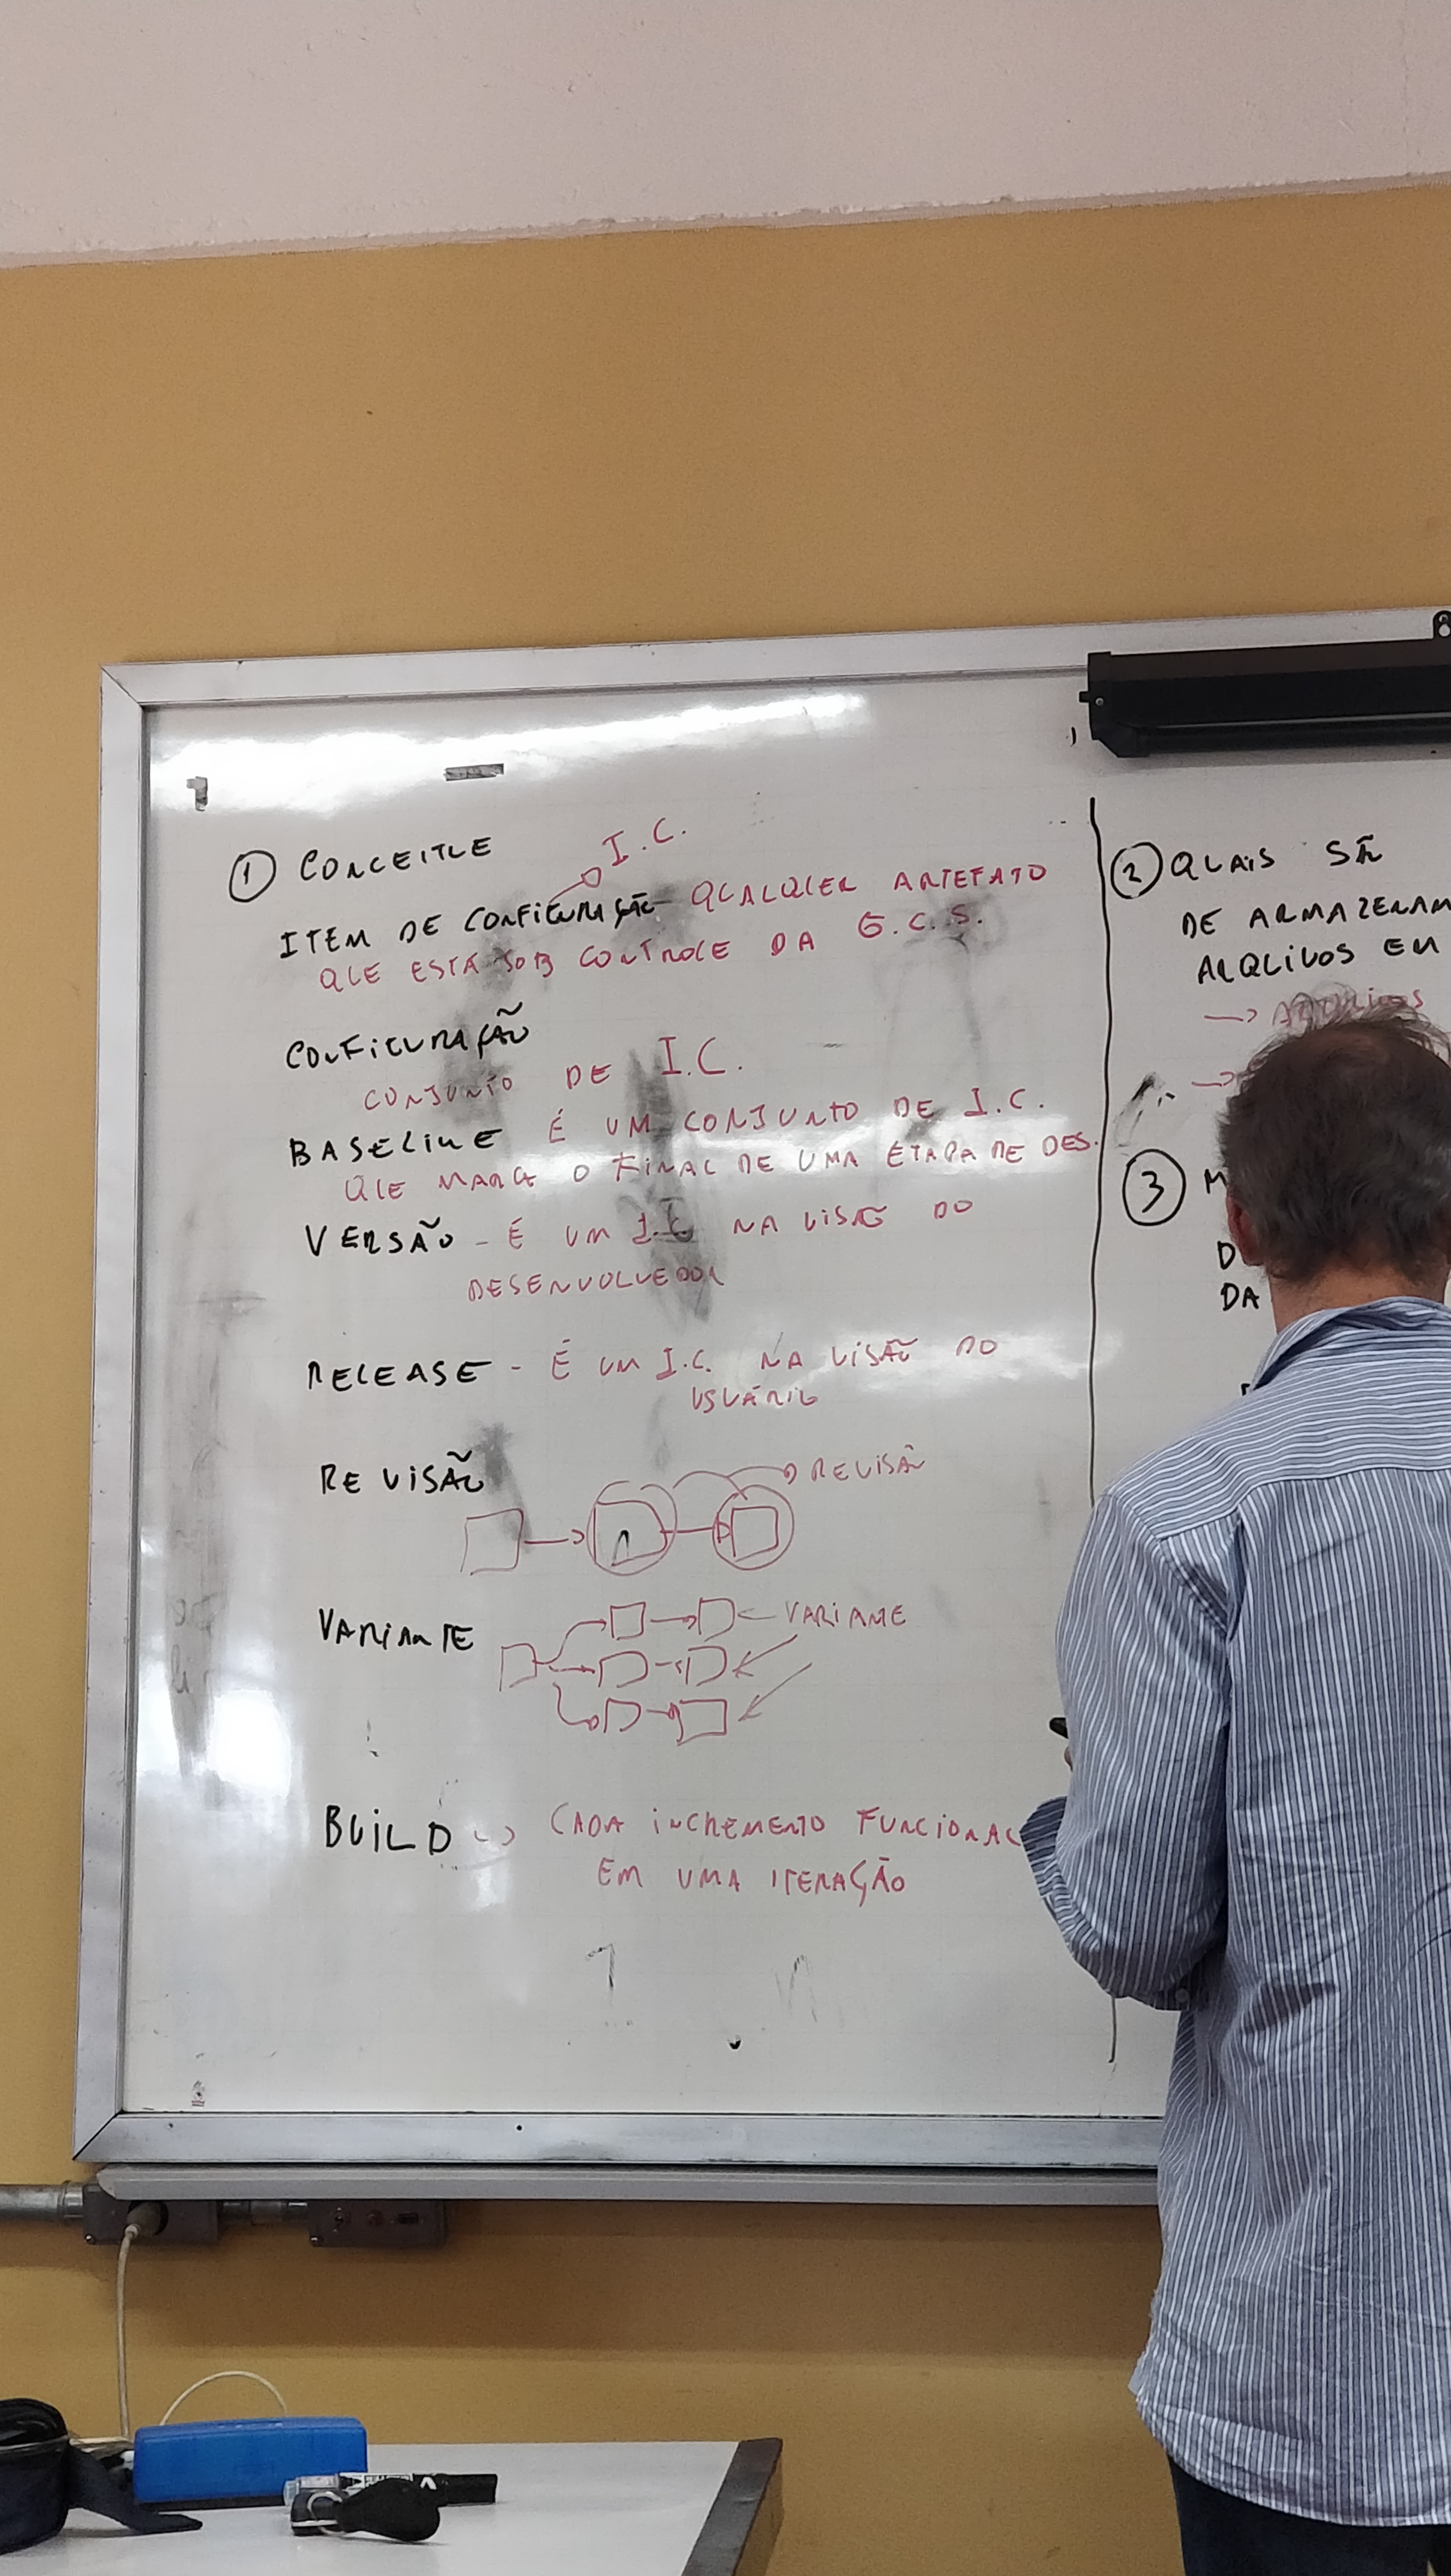 ① CONCEITUE
I.C.
ITEM DE CONFIGURAÇÃO - QUALQUER ARTEFATO
QUE ESTÁ SOB CONTROLE DA G.C.S.
CONFIGURAÇÃO
CONJUNTO DE I.C.
BASELINE É UM CONJUNTO DE I.C.
QUE MARCA O FINAL DE UMA ETAPA DE DES.
VERSÃO - É UM I.C. NA VISÃO DO
DESENVOLVEDOR
RELEASE - É UM I.C. NA VISÃO DO
USUÁRIO
REVISÃO
REVISÃO
VARIANTE
VARIANTE
BUILD -> CADA INCREMENTO FUNCIONAL
EM UMA ITERAÇÃO
② QUAIS SÃ
DE ARMAZENAM
ARQUIVOS EM
③ M
D
DA